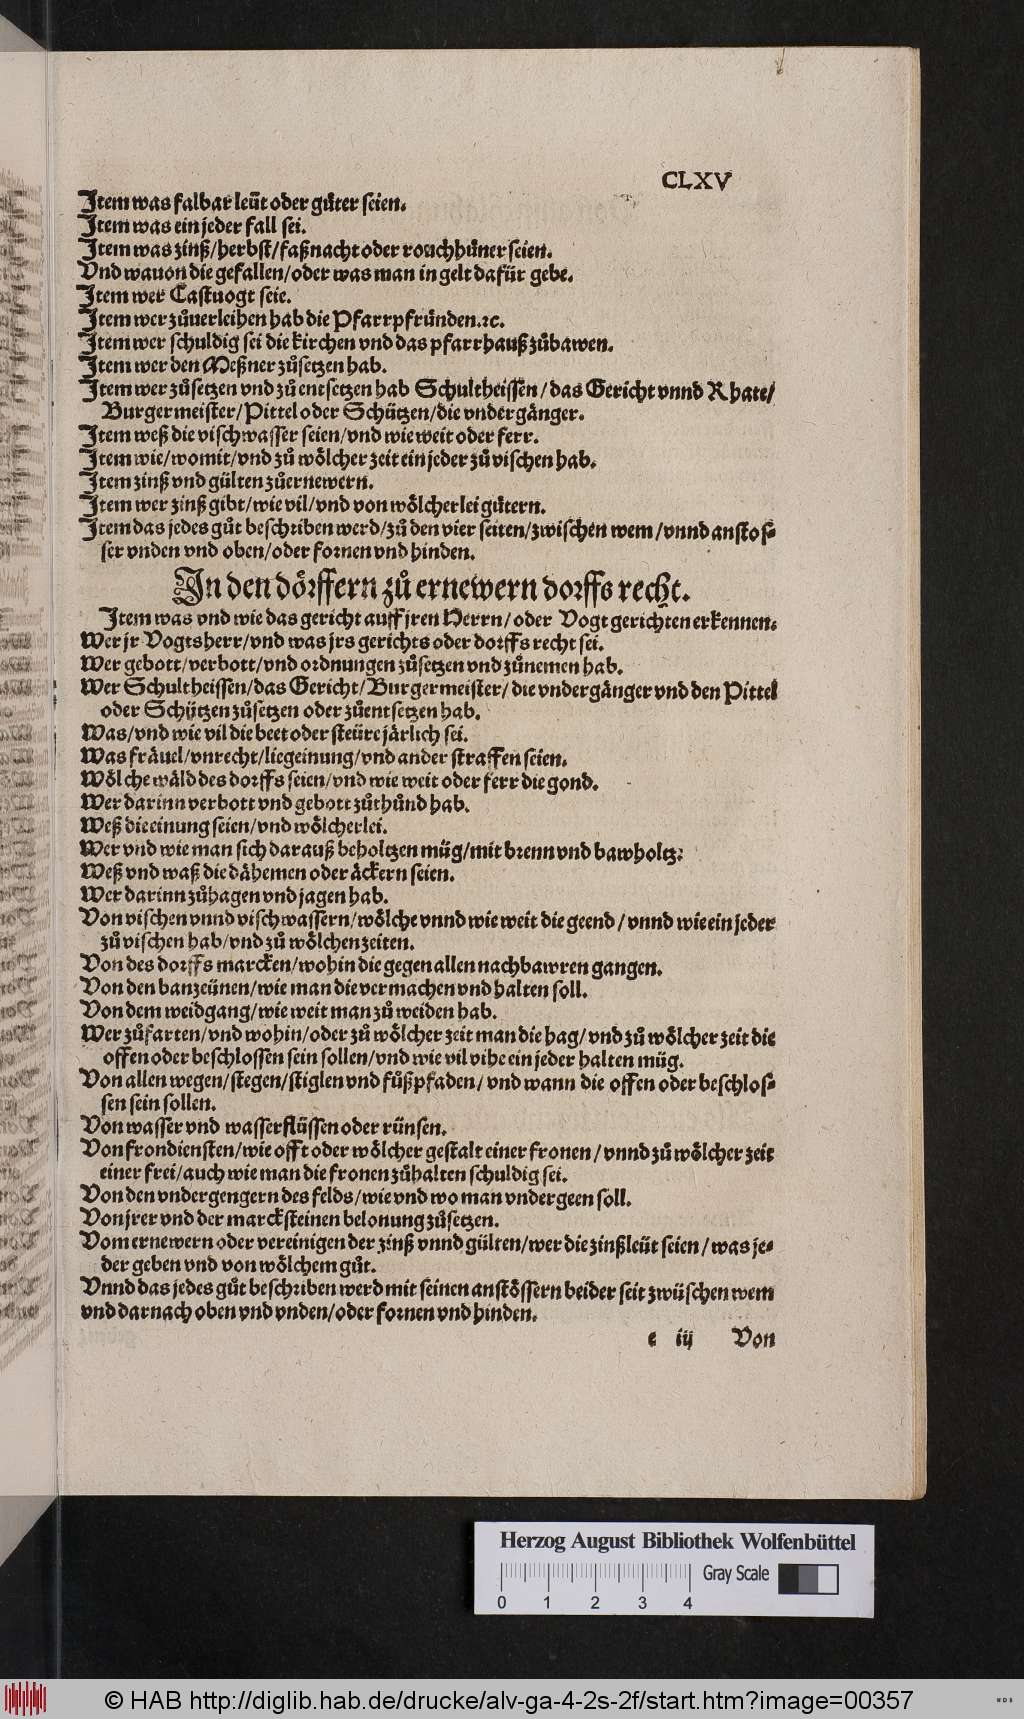 CLXV
Item was falbar leüt oder gůter seien.
Item was ein jeder fall sei.
Item was zinß/herbst/faßnacht oder rouchhůner seien.
Vnd wauon die gefallen/oder was man in gelt dafür gebe.
Item wer Castuogt seie.
Item wer zůuerleihen hab die Pfarrpfründen.ꝛc.
Item wer schuldig sei die kirchen vnd das pfarrhauß zůbawen.
Item wer den Meßner zůsetzen hab.
Item wer zůsetzen vnd zů entsetzen hab Schultheissen/das Gericht vnnd Rhate/
Burgermeister/Pittel oder Schützen/die vndergänger.
Item weß die vischwasser seien/vnd wie weit oder ferr.
Item wie/womit/vnd zů wölcher zeit ein jeder zů vischen hab.
Item zinß vnd gülten zůernewern.
Item wer zinß gibt/wie vil/vnd von wölcherlei gůtern.
Item das jedes gůt beschriben werd/zů den vier seiten/zwischen wem/vnnd anstos⸗
ser vnden vnd oben/oder fornen vnd hinden.
In den dörffern zů ernewern dorffs recht.
Item was vnd wie das gericht auff jren Herrn/oder Vogt gerichten erkennen.
Wer jr Vogtsherr/vnd was jrs gerichts oder dorffs recht sei.
Wer gebott/verbott/vnd ordnungen zůsetzen vnd zůnemen hab.
Wer Schultheissen/das Gericht/Burgermeister/die vndergänger vnd den Pittel
oder Schützen zůsetzen oder zůentsetzen hab.
Was/vnd wie vil die beet oder steüre järlich sei.
Was fräuel/vnrecht/liegeinung/vnd ander straffen seien.
Wölche wäld des dorffs seien/vnd wie weit oder ferr die gond.
Wer darinn verbott vnd gebott zůthůnd hab.
Weß die einung seien/vnd wölcherlei.
Wer vnd wie man sich darauß beholtzen müg/mit brenn vnd bawholtz.
Weß vnd waß die dähemen oder äckern seien.
Wer darinn zůhagen vnd jagen hab.
Von vischen vnnd vischwassern/wölche vnnd wie weit die geend/vnnd wie ein jeder
zů vischen hab/vnd zů wölchen zeiten.
Von des dorffs marcken/wohin die gegen allen nachbawren gangen.
Von den banzeünen/wie man die vermachen vnd halten soll.
Von dem weidgang/wie weit man zů weiden hab.
Wer zůfarten/vnd wohin/oder zů wölcher zeit man die hag/vnd zů wölcher zeit die
offen oder beschlossen sein sollen/vnd wie vil vihe ein jeder halten müg.
Von allen wegen/stegen/stiglen vnd fůßpfaden/vnd wann die offen oder beschlos⸗
sen sein sollen.
Von wasser vnd wasserflüssen oder rünsen.
Von frondiensten/wie offt oder wölcher gestalt einer fronen/vnnd zů wölcher zeit
einer frei/auch wie man die fronen zůhalten schuldig sei.
Von den vndergengern des felds/wie vnd wo man vndergeen soll.
Von jrer vnd der marcksteinen belonung zůsetzen.
Vom ernewern oder vereinigen der zinß vnnd gülten/wer die zinßleüt seien/was je⸗
der geben vnd von wölchem gůt.
Vnnd das jedes gůt beschriben werd mit seinen anstössern beider seit zwüschen wem
vnd darnach oben vnd vnden/oder fornen vnd hinden.
e iij Von
Herzog August Bibliothek Wolfenbüttel
Gray Scale
0 1 2 3 4
© HAB http://diglib.hab.de/drucke/alv-ga-4-2s-2f/start.htm?image=00357